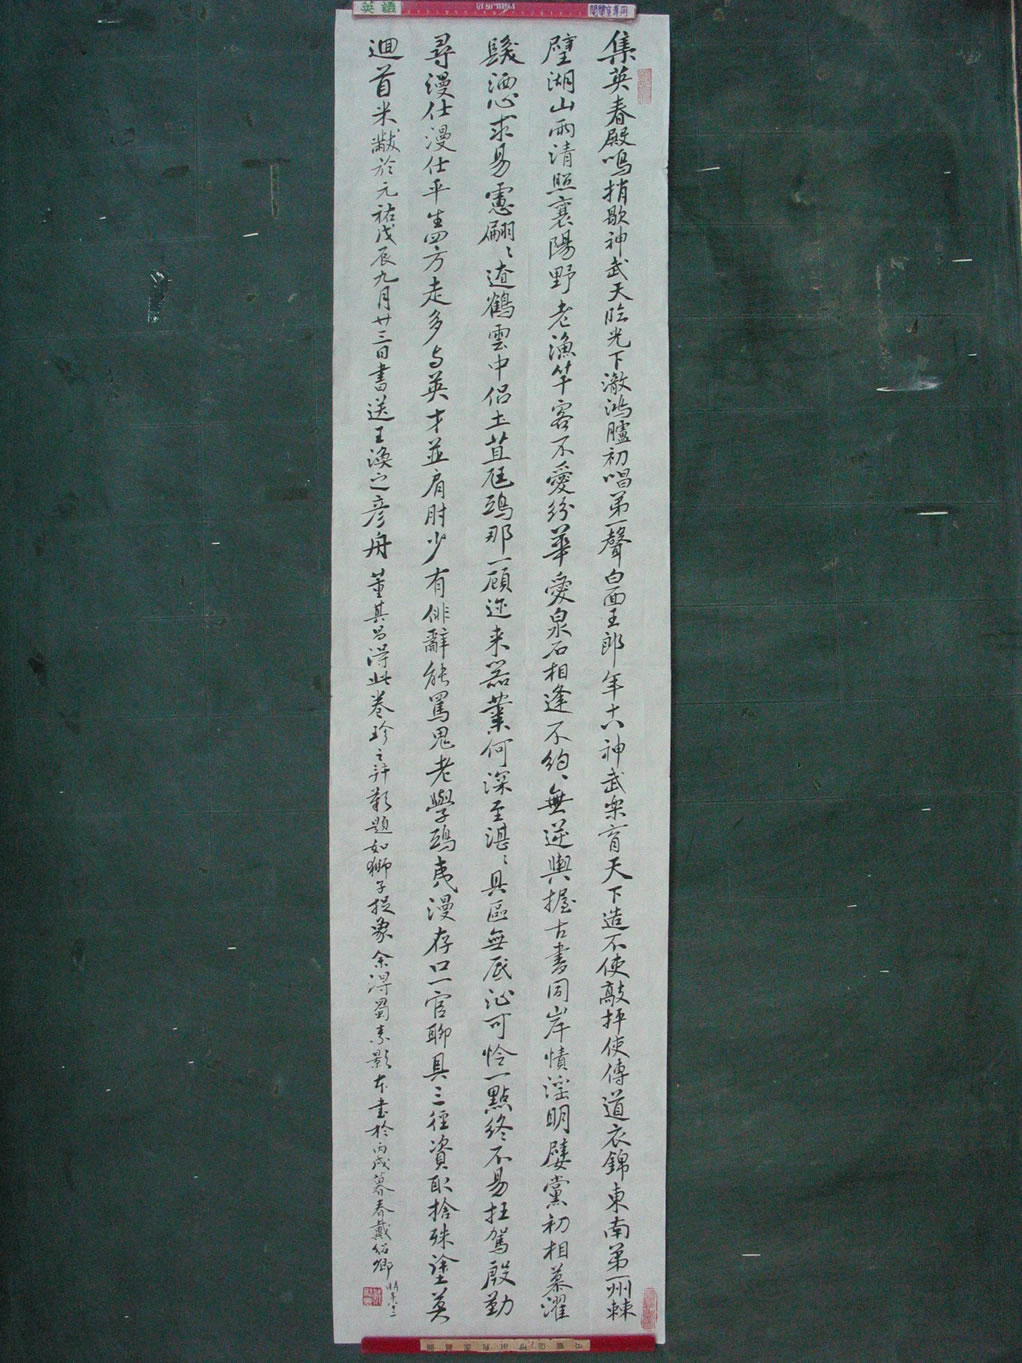 英語
集英春殿鳴捎歇神武天臨光下澈鴻臚初唱第一聲白面王郎年十八神武樂育天下造不使敲抨使傳道衣錦東南第一州棘
璧湖山兩清照襄陽野老漁竿客不愛紛華愛泉石相逢不約、無逆輿握古書同岸幘淫朋嬖黨初相慕濯
髮洒心求易慮翩、遼鶴雲中侶土苴尪鴟那一顧迩来器業何深至湛、具區無底沚可怜一點終不易枉駕殷勤
尋漫仕漫仕平生四方走多与英才並肩肘少有俳辭能罵鬼老學鴟夷漫存口一官聊具三徑資取捨殊塗莫
迴首米黻於元祐戊辰九月廿三日書送王渙之彦舟 董其昌得此卷珍之并歎題如獅子捉象余得蜀素影本書於丙戌暮春戴紹卿時年